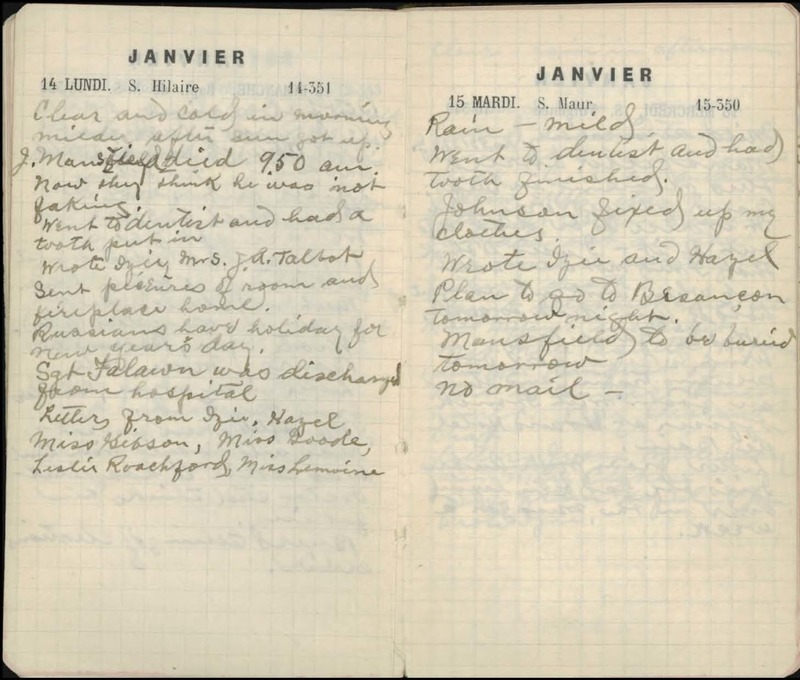 JANVIER
14 LUNDI. S. Hilaire 14-351
Clear and cold in morning
milder after sun got up.
J. Mansfield died 950 am.
Now they think he was not
faking.
Went to dentist and had a
tooth put in
Wrote Izie, Mrs. J.A. Talbot
Sent pictures of room and
fireplace home.
Russians have holiday for
new year's day.
Sgt Falawn was discharged
from hospital
Letters from Izie, Hazel
Miss Gibson, Miss Goode,
Leslie Roachford, Miss Lemoine
JANVIER
15 MARDI. S. Maur 15-350
Rain - mild
Went to dentist and had
tooth finished.
Johnson fixed up my
clothes.
Wrote Izie and Hazel
Plan to go to Besançon
tomorrow night.
Mansfield to be buried
tomorrow
No mail -